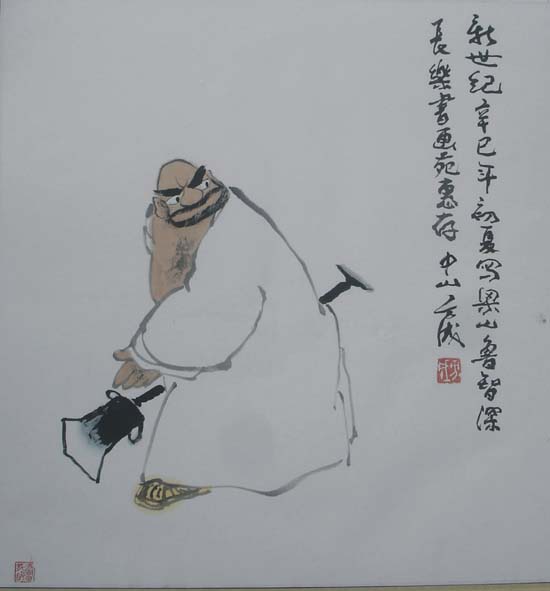 新世纪辛巳年初夏写梁山鲁智深
長樂書画苑惠存 中山方成